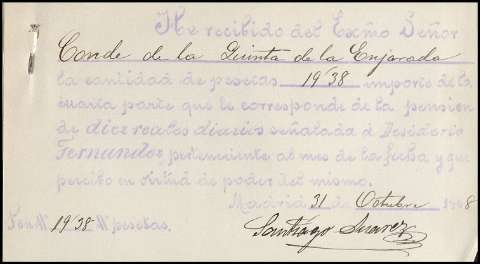 He recibido del Exmo Señor
Conde de la Quinta de la Enjarada
la cantidad de pesetas 19'38 importe de la
cuarta parte que le corresponde de la pension
de diez reales diarios señalada á Desiderio
Fernandez perteneciente al mes de la fecha y que
percibo en virtud de poder del mismo.
Madrid 31 de Octubre 8
Son Nº 19'38 Nº pesetas.
Santiago Suarez